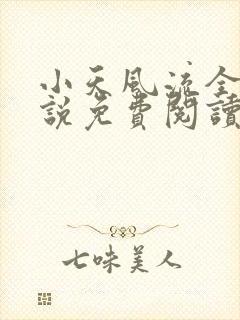 小天風流全
說免費閱讀
七味美人